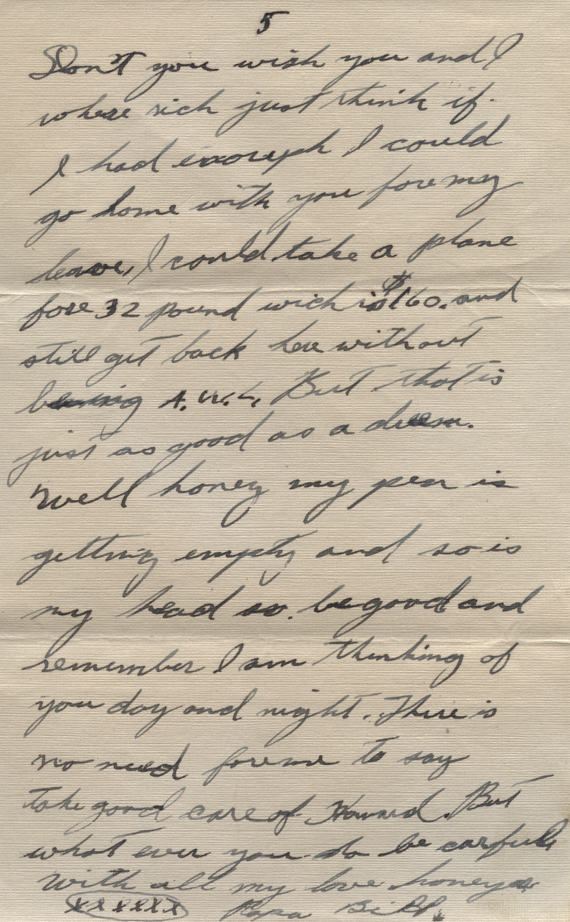 5
Don't you wish you and I
where rich just think if
I had enough I could
go home with you fore my
leave, I could take a plane
fore 32 pound wich is $160. and
still get back here without
being A.W.L. But that is
just as good as a dream.
Well honey my pen is
getting empty and so is
my head so. be good and
remember I am thinking of
you day and night. There is
no need fore me to say
take good care of Howard. But
what ever you do be carfull
With all my love honey
xxxxxx Papa Bill.